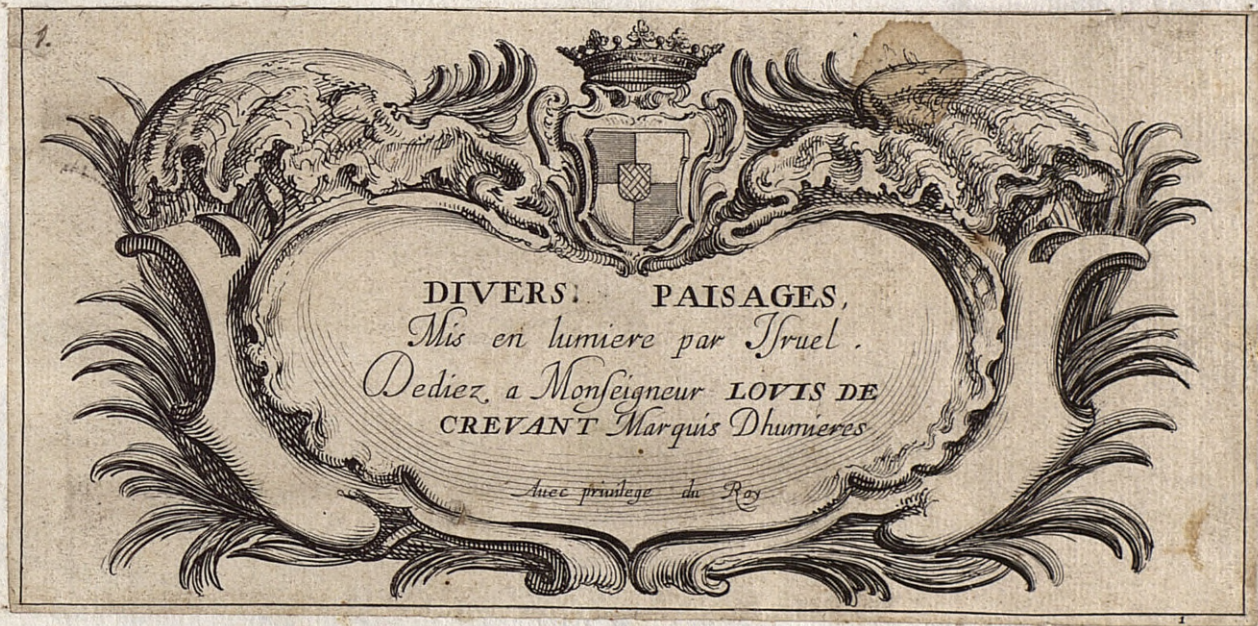 1.
DIVERS: PAISAGES,
Mis en lumiere par Iſruel.
Dediez, a Monſeigneur LOVIS DE
CREVANT Marquis Dhumieres
Auec priuilege du Roy
1